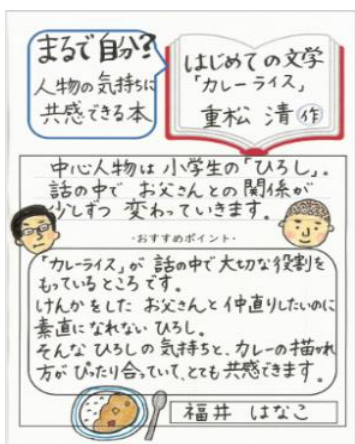 まるで自分?
人物の気持ちに
共感できる本
はじめての文学
「カレーライス」
重松 清 作
中心人物は小学生の「ひろし」。
話の中で お父さんとの関係が
少しずつ 変わっていきます。
・おすすめポイント・
「カレーライス」が 話の中で大切な役割を
もっているところです。
けんかをした お父さんと仲直りしたいのに
素直になれない ひろし。
そんな ひろしの気持ちと、カレーの描かれ
方が ぴったり合っていて、とても共感できます。
福井 はなこ